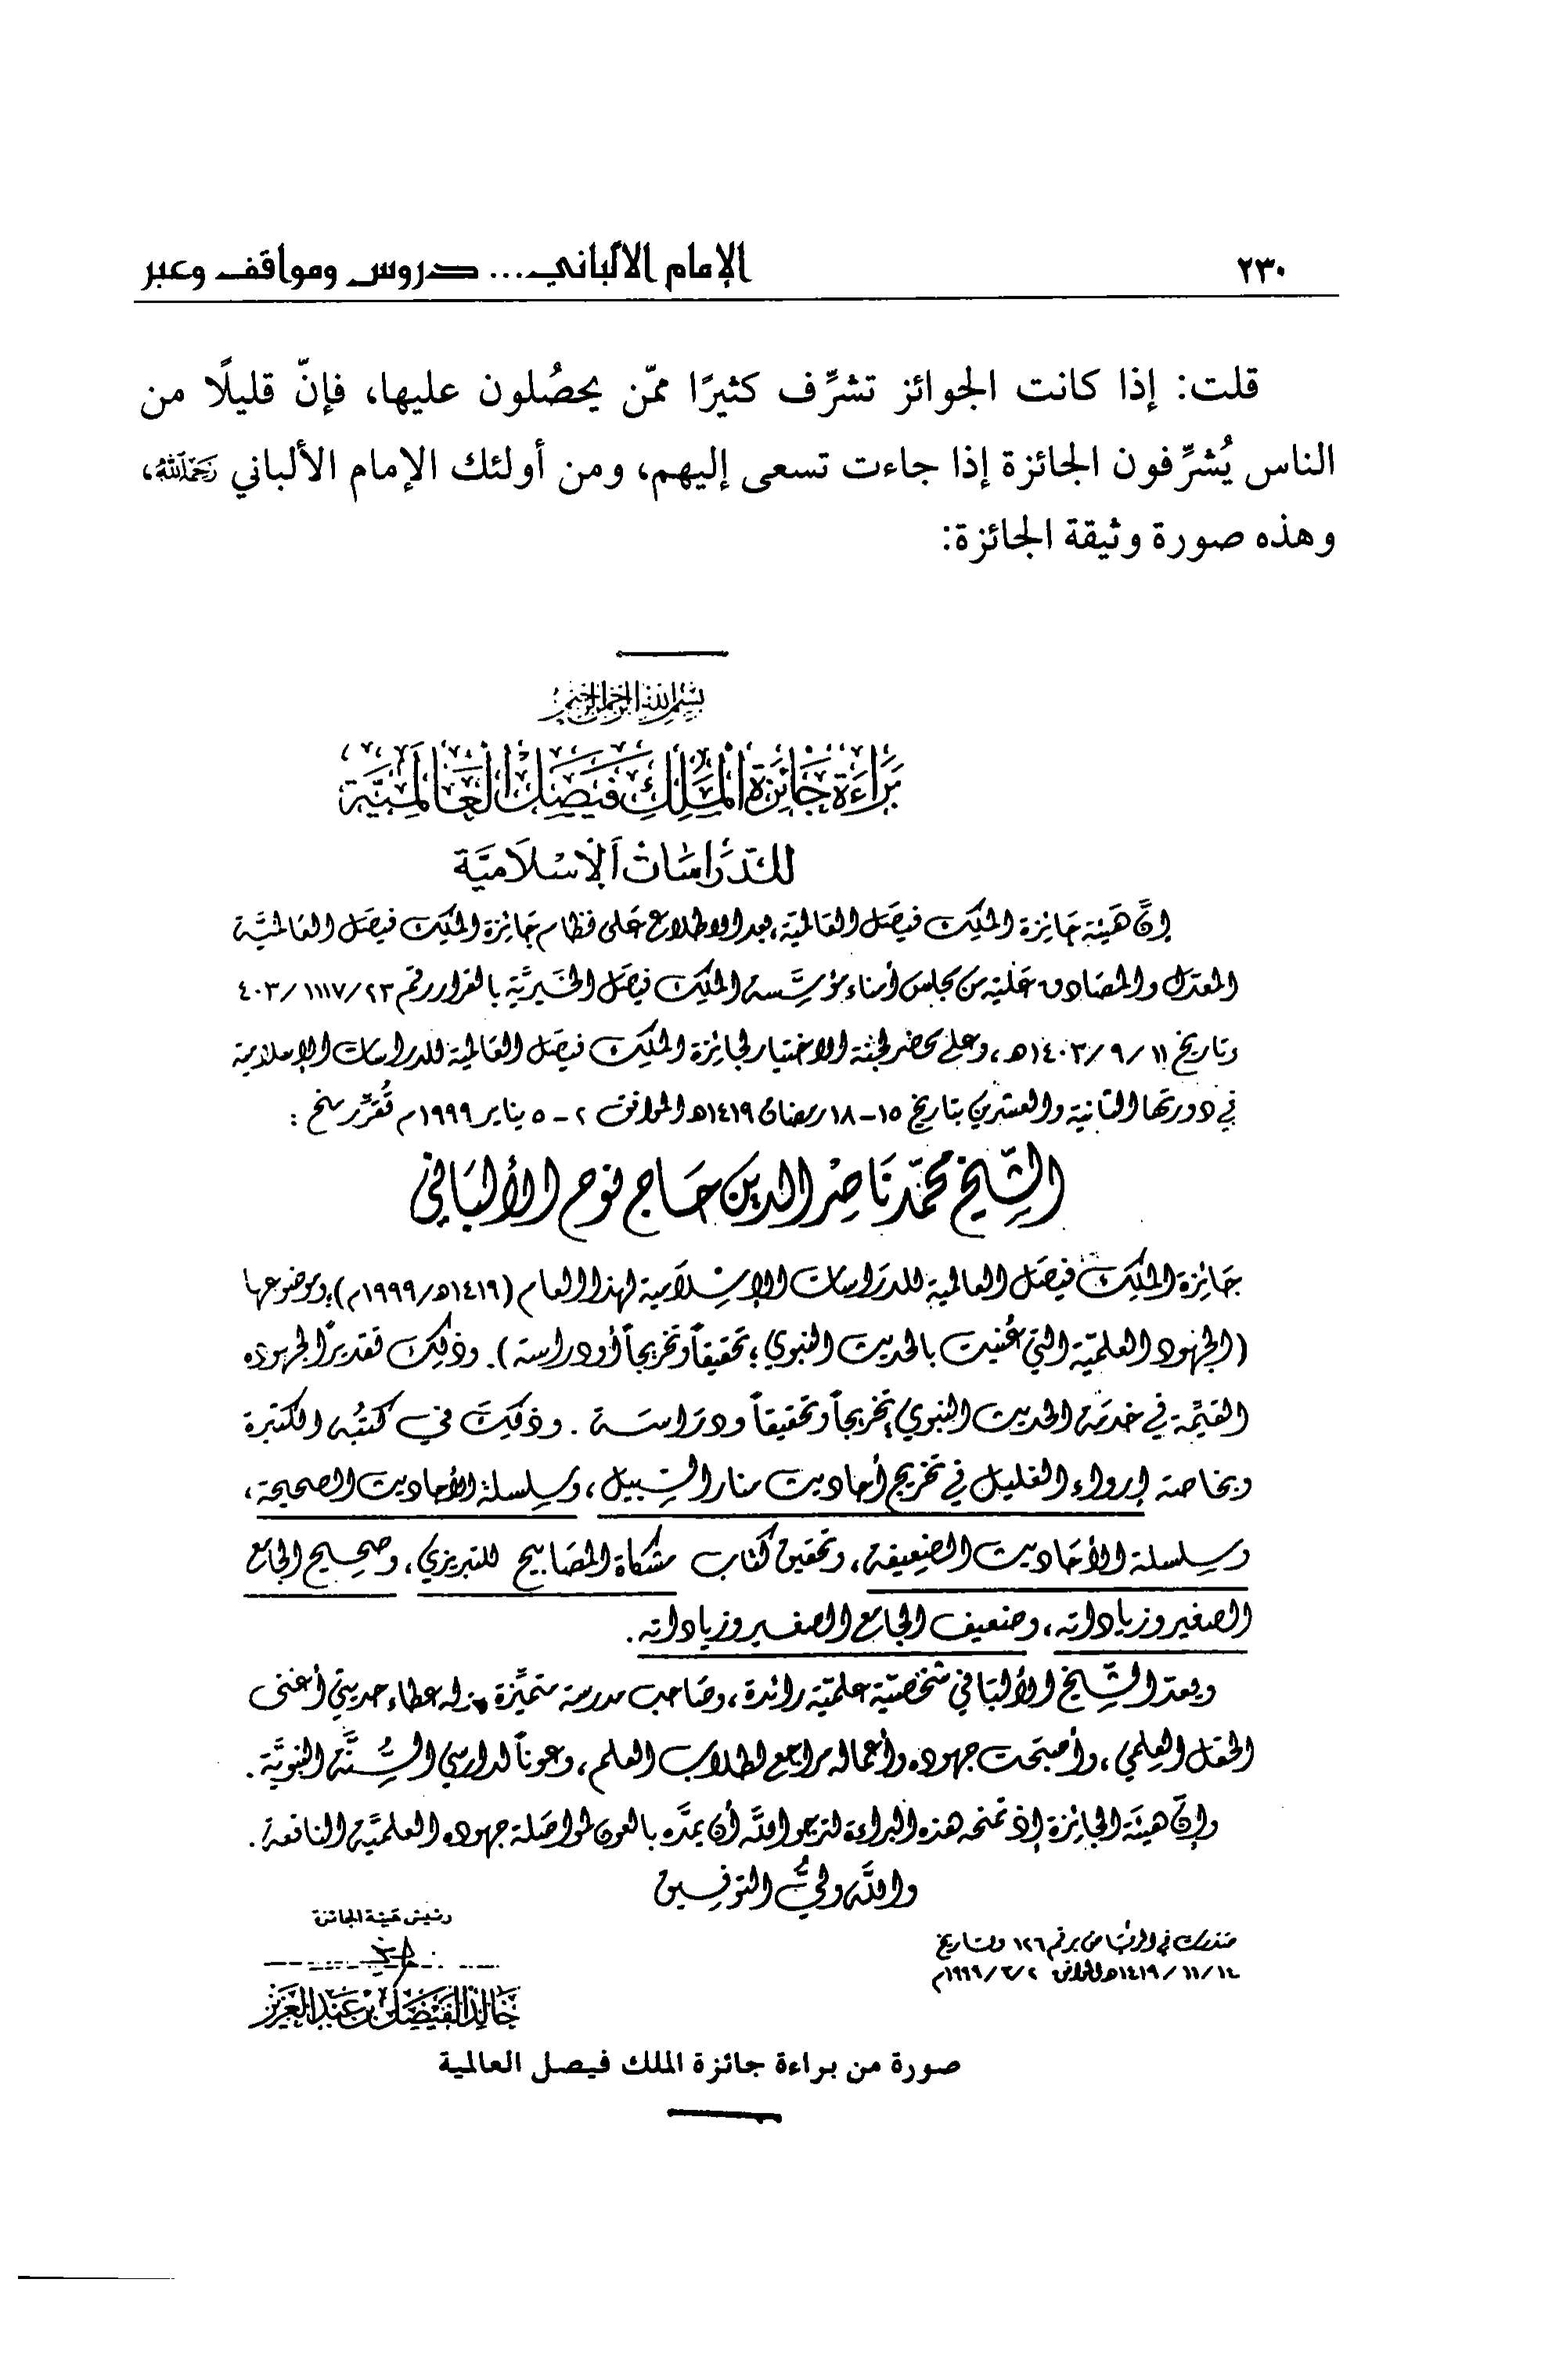 ٢٣٠
الإمام الألباني... دروس ومواقف وعبر
قلت: إذا كانت الجوائز تشرِّف كثيرًا ممّن يحصُلون عليها، فإنّ قليلًا من
الناس يُشرِّفون الجائزة إذا جاءت تسعى إليهم، ومن أولئك الإمام الألباني رَحِمَهُ اللَّهُ،
وهذه صورة وثيقة الجائزة:
بسم الله الرحمن الرحيم
بَرَاءَة جَائِزَة المَلِك فَيصَل العَالَمِيَّة
للدّرَاسَات الإسْلَاميَّة
إنَّ هَيئة جَائزة الملِك فيصَل العَالميّة، بعد الاطلاع عَلى نظام جَائزة الملِك فيصَل العَالميَّة
المعَدّل والمصَادق عَليه من مجلس أمناء مؤسَّسة الملِك فيصَل الخَيريَّة بالقرار رقم ٤٠٣/١١١٧/٢٣
وتاريخ ١٤٠٣/٩/١١هـ، وعلى محضر لجنة الاختيار لجائزة الملِك فيصَل العَالمية للدراسات الإسلامية
في دورتها الثانية والعشرين بتاريخ ١٥-١٨ رمضان ١٤١٩هـ الموافق ٢-٥ يناير ١٩٩٩م تُقرِّر منح:
الشّيخ محمّد نَاصِر الدين حَاج نوح الألبَاني
جَائِزة الملِك فيصَل العالمية للدّرَاسَات الإسْلَامية لهذا العام (١٤١٩هـ/١٩٩٩م)؛ وموضوعها
(الجهُود العلميّة التي عُنيت بالحديث النبوي؛ تحقيقاً وتخريجاً أو دراسة). وذلِك تقديراً لجهوده
القيّمة في خدمَة الحديث النبوي؛ تخريجاً وتحقيقاً ودرَاسَة. وذلِكَ في كتبُه الكثيرة
وبخاصة إرواء الغليل في تخريج أحاديث منار السّبيل، وسِلسلة الأحاديث الصحيحة،
وسِلسلة الأحَاديث الضعيفة، وتحقيق كتاب مشكاة المصَابيح للتبريزي، وصَحيح الجامع
الصغير وزياداته، وضعيف الجامع الصغير وزياداته.
ويعدّ الشّيخ الألبَاني شخصيّة علميّة رائدة، وصَاحب مدرسة متميِّزة، وله عطاء حديثي أغنى
الحقل العِلمي، وأصبَحت جهوده وأعماله مراجع لطلاب العلم، وعوناً لدارسي السُّنَّة النبويَّة.
وإنَّ هيئَة الجَائزة إذ تمنحه هذه البراءة لترجو اللَّه أن يمدَّه بالعون لمواصَلة جهوده العلميَّة النافعة.
واللَّه وليُّ التوفيق
رئيس هَيئة الجائزة
خَالد الفَيصَل بن عَبد العَزيز
بتاريخ
١٤١٩/١١/١٤هـ الموافق ١٩٩٩/٣/٢م
صورة من براءة جائزة الملك فيصل العالمية